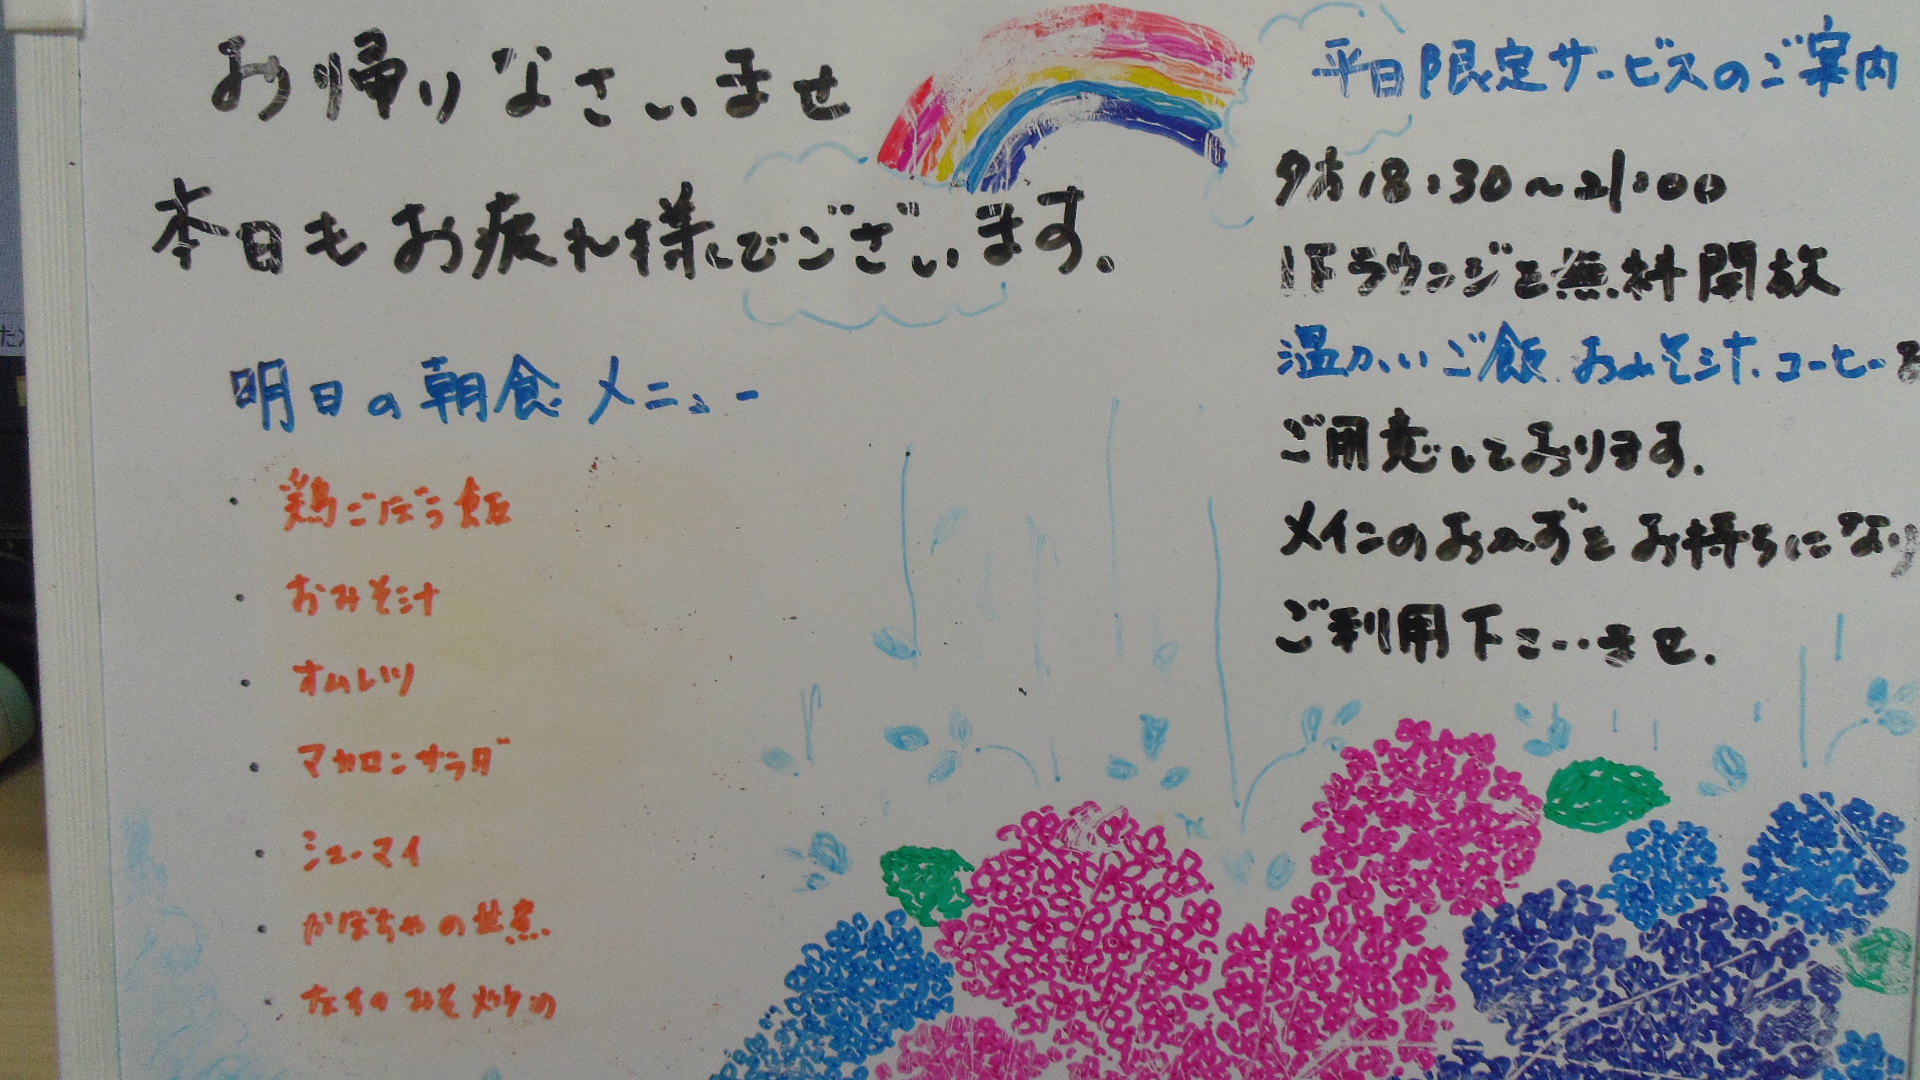 お帰りなさいませ
本日もお疲れ様でございます。
明日の朝食メニュー
・鶏ごぼう飯
・おみそ汁
・オムレツ
・マカロンサラダ
・シューマイ
・かぼちゃの甘煮
・なすのみそ炒め
平日限定サービスのご案内
夕方18:30~21:00
1Fラウンジを無料開放
温かいご飯.おみそ汁.コーヒーを
ご用意しております.
メインのおかずをお持ちになり
ご利用下さいませ.